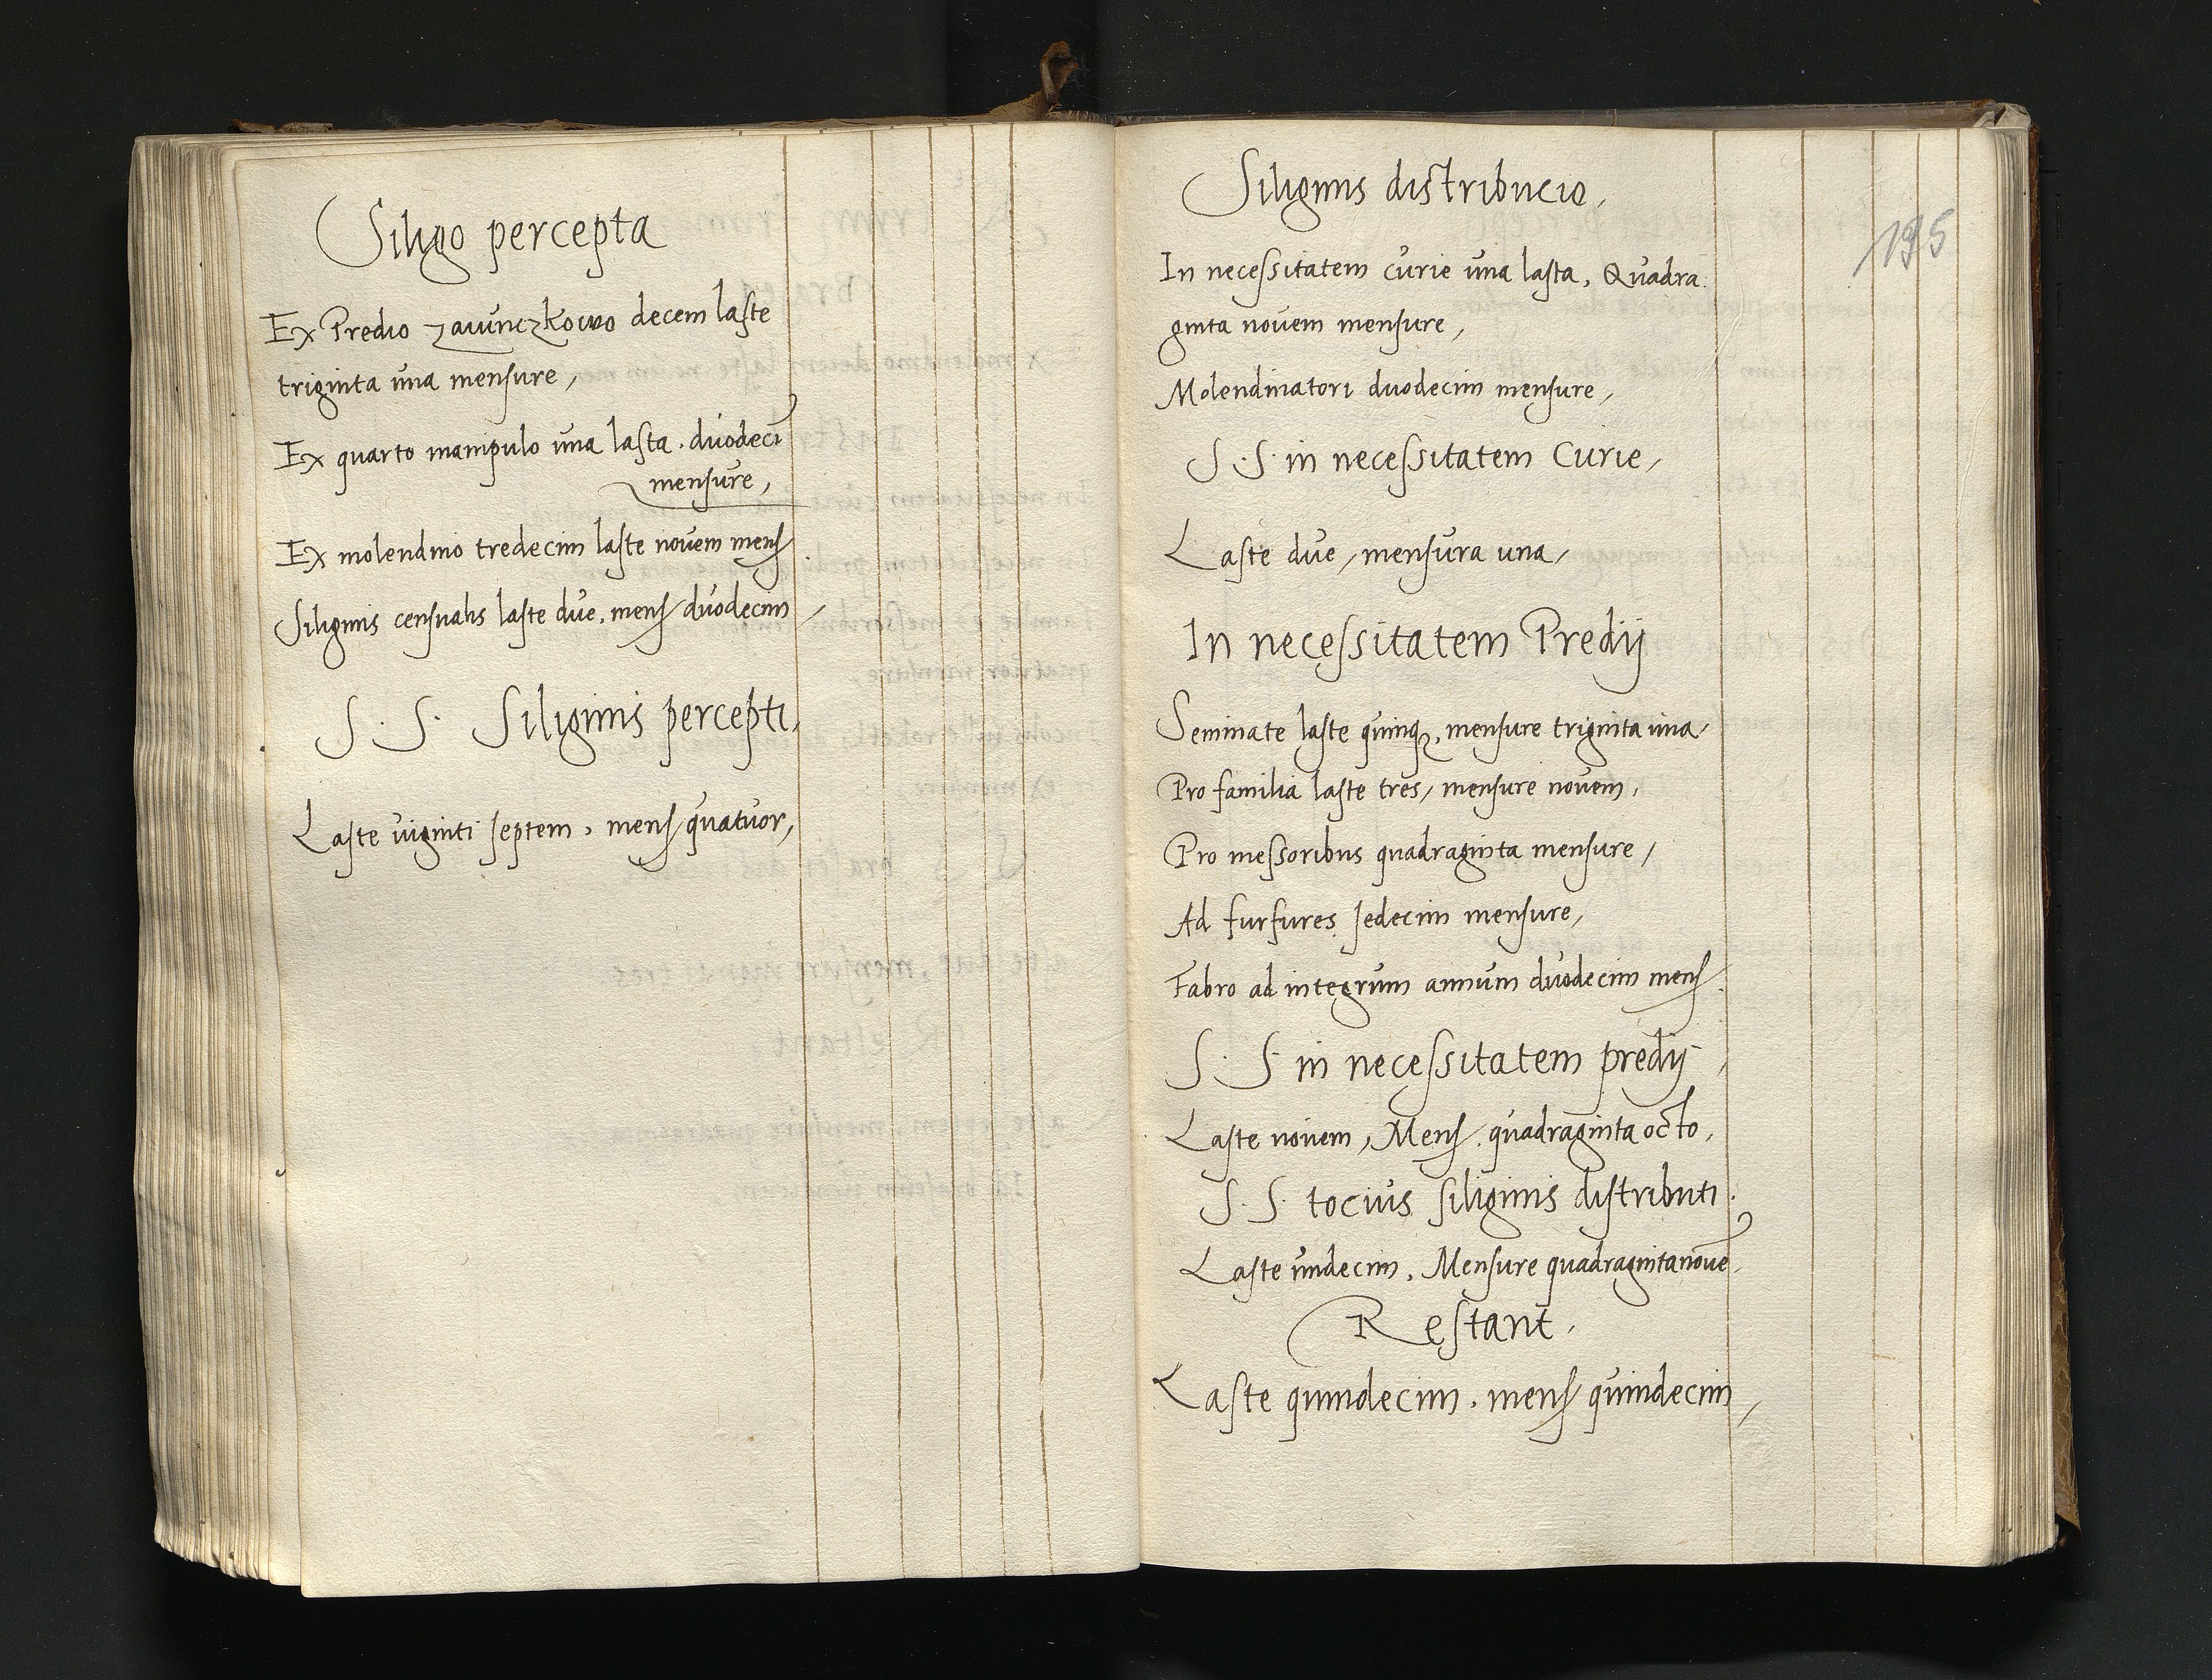 Siligo percepta
Ex Predio zaiunczkowo decem laste
triginta una mensure,
Ex quarto manipulo una lasta. duodeci
mensure,
Ex molendino tredecim laste novem mens
Siliginis censualis laste due, mens duodecim
S. S. Siliginis percepti,
Laste viginti septem, mens quatuor,
Siliginis distribucio,
195
In necessitatem curie una lasta, Quadra
ginta novem mensure,
Molendinatori duodecim mensure,
S. S. in necessitatem Curie,
Laste due, mensura una,
In necessitatem Predij
Seminate laste quinq, mensure triginta una,
Pro familia laste tres, mensure novem,
Pro messoribus quadraginta mensure,
Ad furfures sedecim mensure,
Fabro ad integrum annum duodecim mens
S. S. in necessitatem predij,
Laste novem, Mens. quadraginta octo,
S. S. tocius siliginis distributi.
Laste undecim, Mensure quadraginta nove
Restant.
Laste quindecim. mens quindecim,